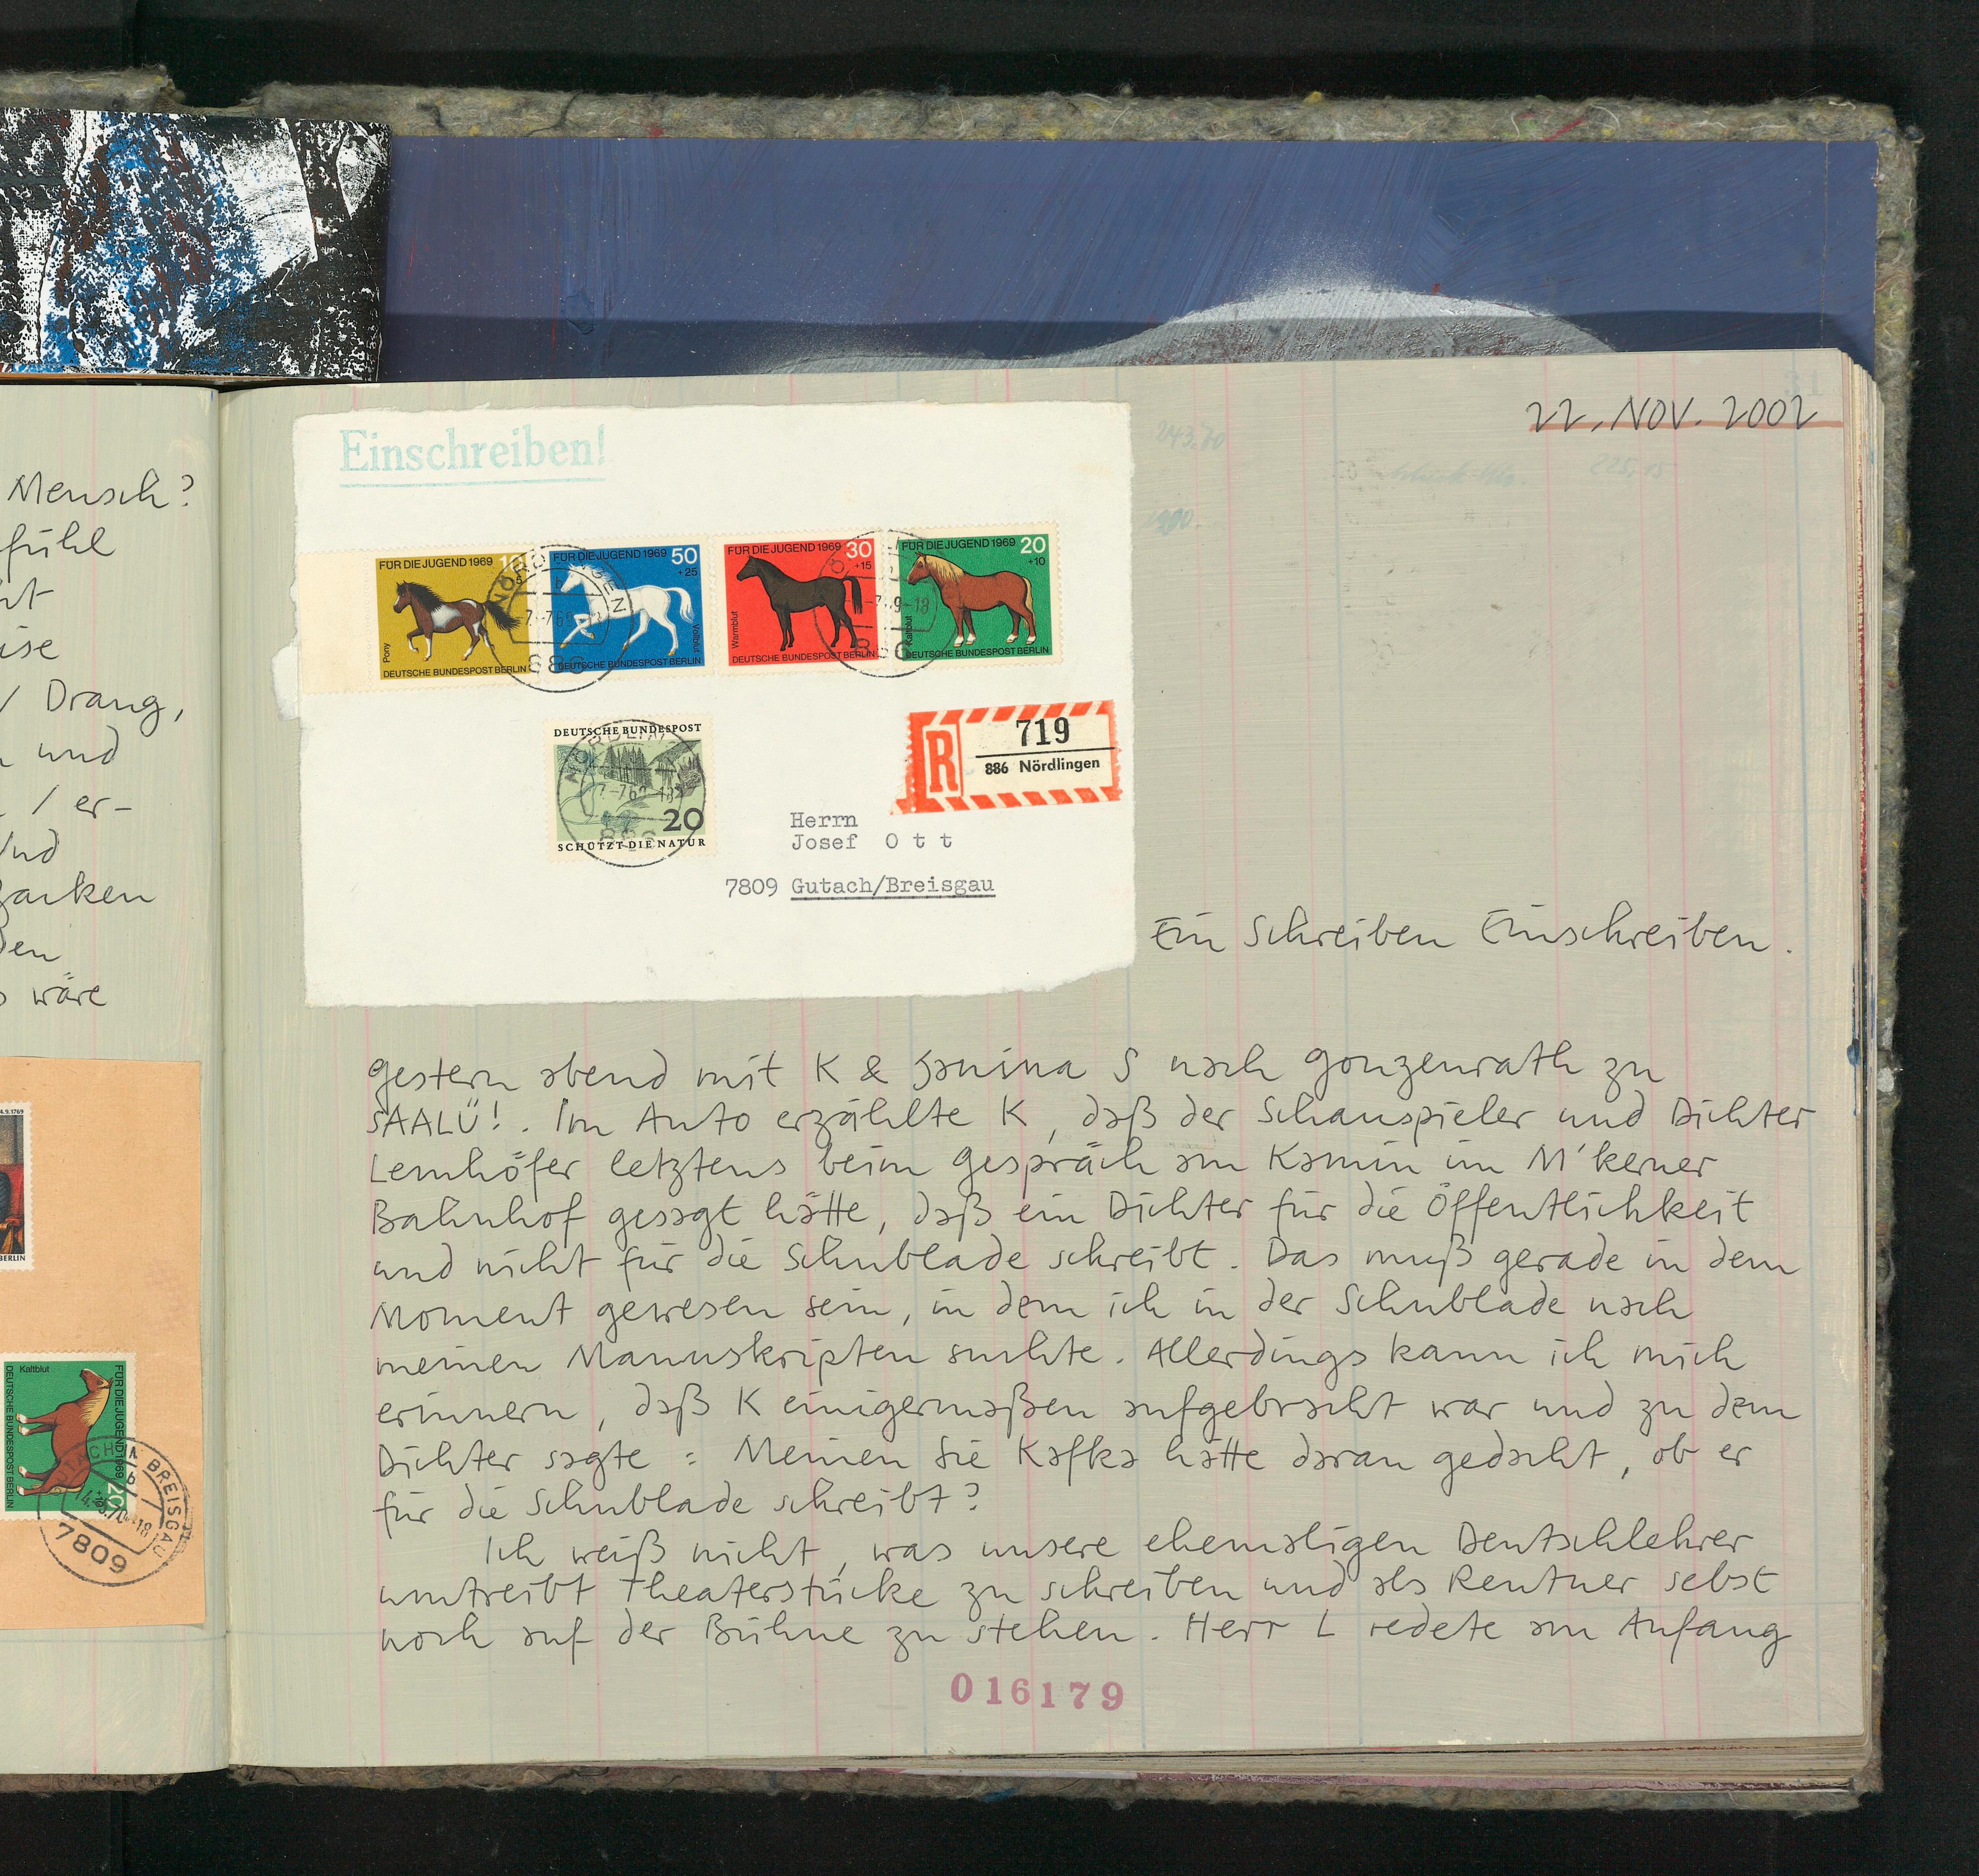 Mensch?
fühl
ise
/ Drang,
und
/ er-
den
wäre
4.9.1769
BERLIN
Kaltblut
FÜR DIE JUGEND 1969
20
DEUTSCHE BUNDESPOST BERLIN
BREISGAU
b
7809
22. NOV. 2002
Einschreiben!
FÜR DIE JUGEND 1969
Pony
DEUTSCHE BUNDESPOST BERLIN
FÜR DIE JUGEND 1969 50
+25
Vollblut
DEUTSCHE BUNDESPOST BERLIN
FÜR DIE JUGEND 1969 30
+15
Warmblut
DEUTSCHE BUNDESPOST BERLIN
FÜR DIE JUGEND 1969 20
+10
Kaltblut
DEUTSCHE BUNDESPOST BERLIN
NÖRDLINGEN
b
886
DEUTSCHE BUNDESPOST
20
SCHÜTZT DIE NATUR
R
719
886 Nördlingen
Herrn
Josef Ott
7809 Gutach/Breisgau
Ein Schreiben Einschreiben.
gestern abend mit K & Janina S nach Gonzenrath zu
SAALÜ!. Im Auto erzählte K, daß der Schauspieler und Dichter
Lemhöfer letztens beim Gespräch am Kamin im M'kener
Bahnhof gesagt hätte, daß ein Dichter für die Öffentlichkeit
und nicht für die Schublade schreibt. Das muß gerade in dem
Moment gewesen sein, in dem ich in der Schublade nach
meinen Manuskripten suchte. Allerdings kann ich mich
erinnern, daß K einigermaßen aufgebracht war und zu dem
Dichter sagte: Meinen Sie Kafka hätte daran gedacht, ob er
für die Schublade schreibt?
Ich weiß nicht, was unsere ehemaligen Deutschlehrer
umtreibt Theaterstücke zu schreiben und als Rentner selbst
noch auf der Bühne zu stehen. Herr L redete am Anfang
016179